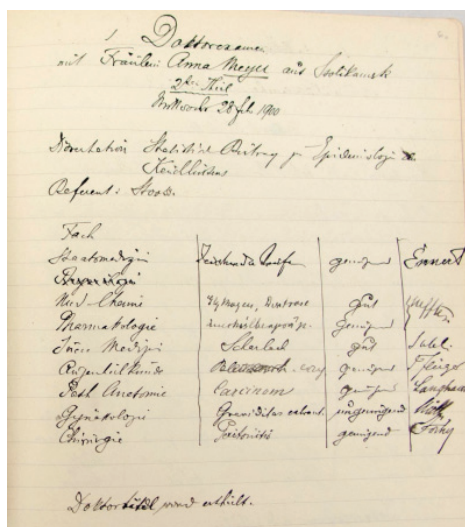 Doktorexamen
mit Fräulein Anna Meyer aus Ssolikamsk
2ter Theil
Mittwoch 28 Feb. 1900
Dissertation Statistischer Beitrag zur Epidemiologie des
Keuchhustens
Referent: Stooss.
Fach
Staatsmedizin genügend Emmert
Med. Chemie gut
Pharmakologie genügend
Innere Medizin Scharlach gut Sahli
Augenheilkunde genügend Pflüger
Path. Anatomie Carcinom genügend Langhans
Gynäkologie Graviditas extraut. ungenügend
Chirurgie Peritonitis genügend
Doktortitel wird ertheilt.